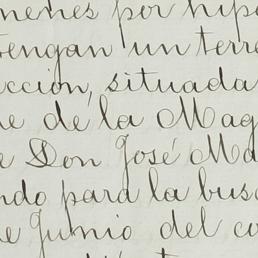 menes por hipo
tengan un terre
cción, situada
e de la Mag
e Don José Ma
ndo para la bus
e Junio del co